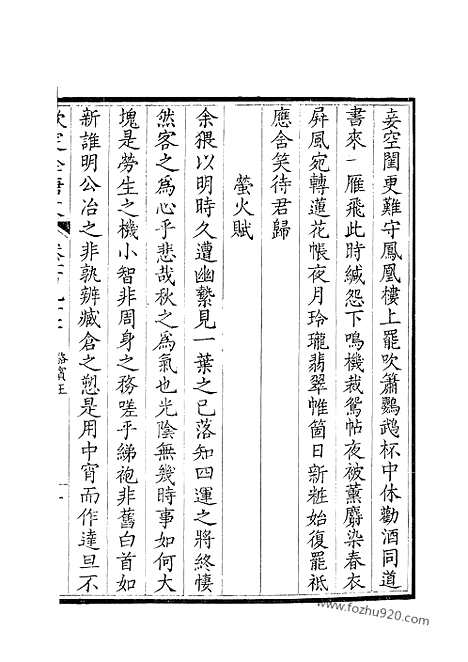 妾空閨更難守鳳凰樓上罷吹簫鸚鵡杯中休勸酒同道
書來一雁飛此時緘怨下鳴機裁鴛帖夜被薰麝染春衣
屏風宛轉蓮花帳夜月玲瓏翡翠帷箇日新粧始復罷祗
應含笑待君歸
螢火賦
余猥以明時久遭幽縶見一葉之已落知四運之將終悽
然客之為心乎悲哉秋之為氣也光陰無幾時事如何大
塊是勞生之機小智非周身之務嗟乎綈袍非舊白首如
新誰明公冶之非孰辨臧倉之愬是用中宵而作達旦不
欽定全唐文
駱賓王
www.fozhu920.com